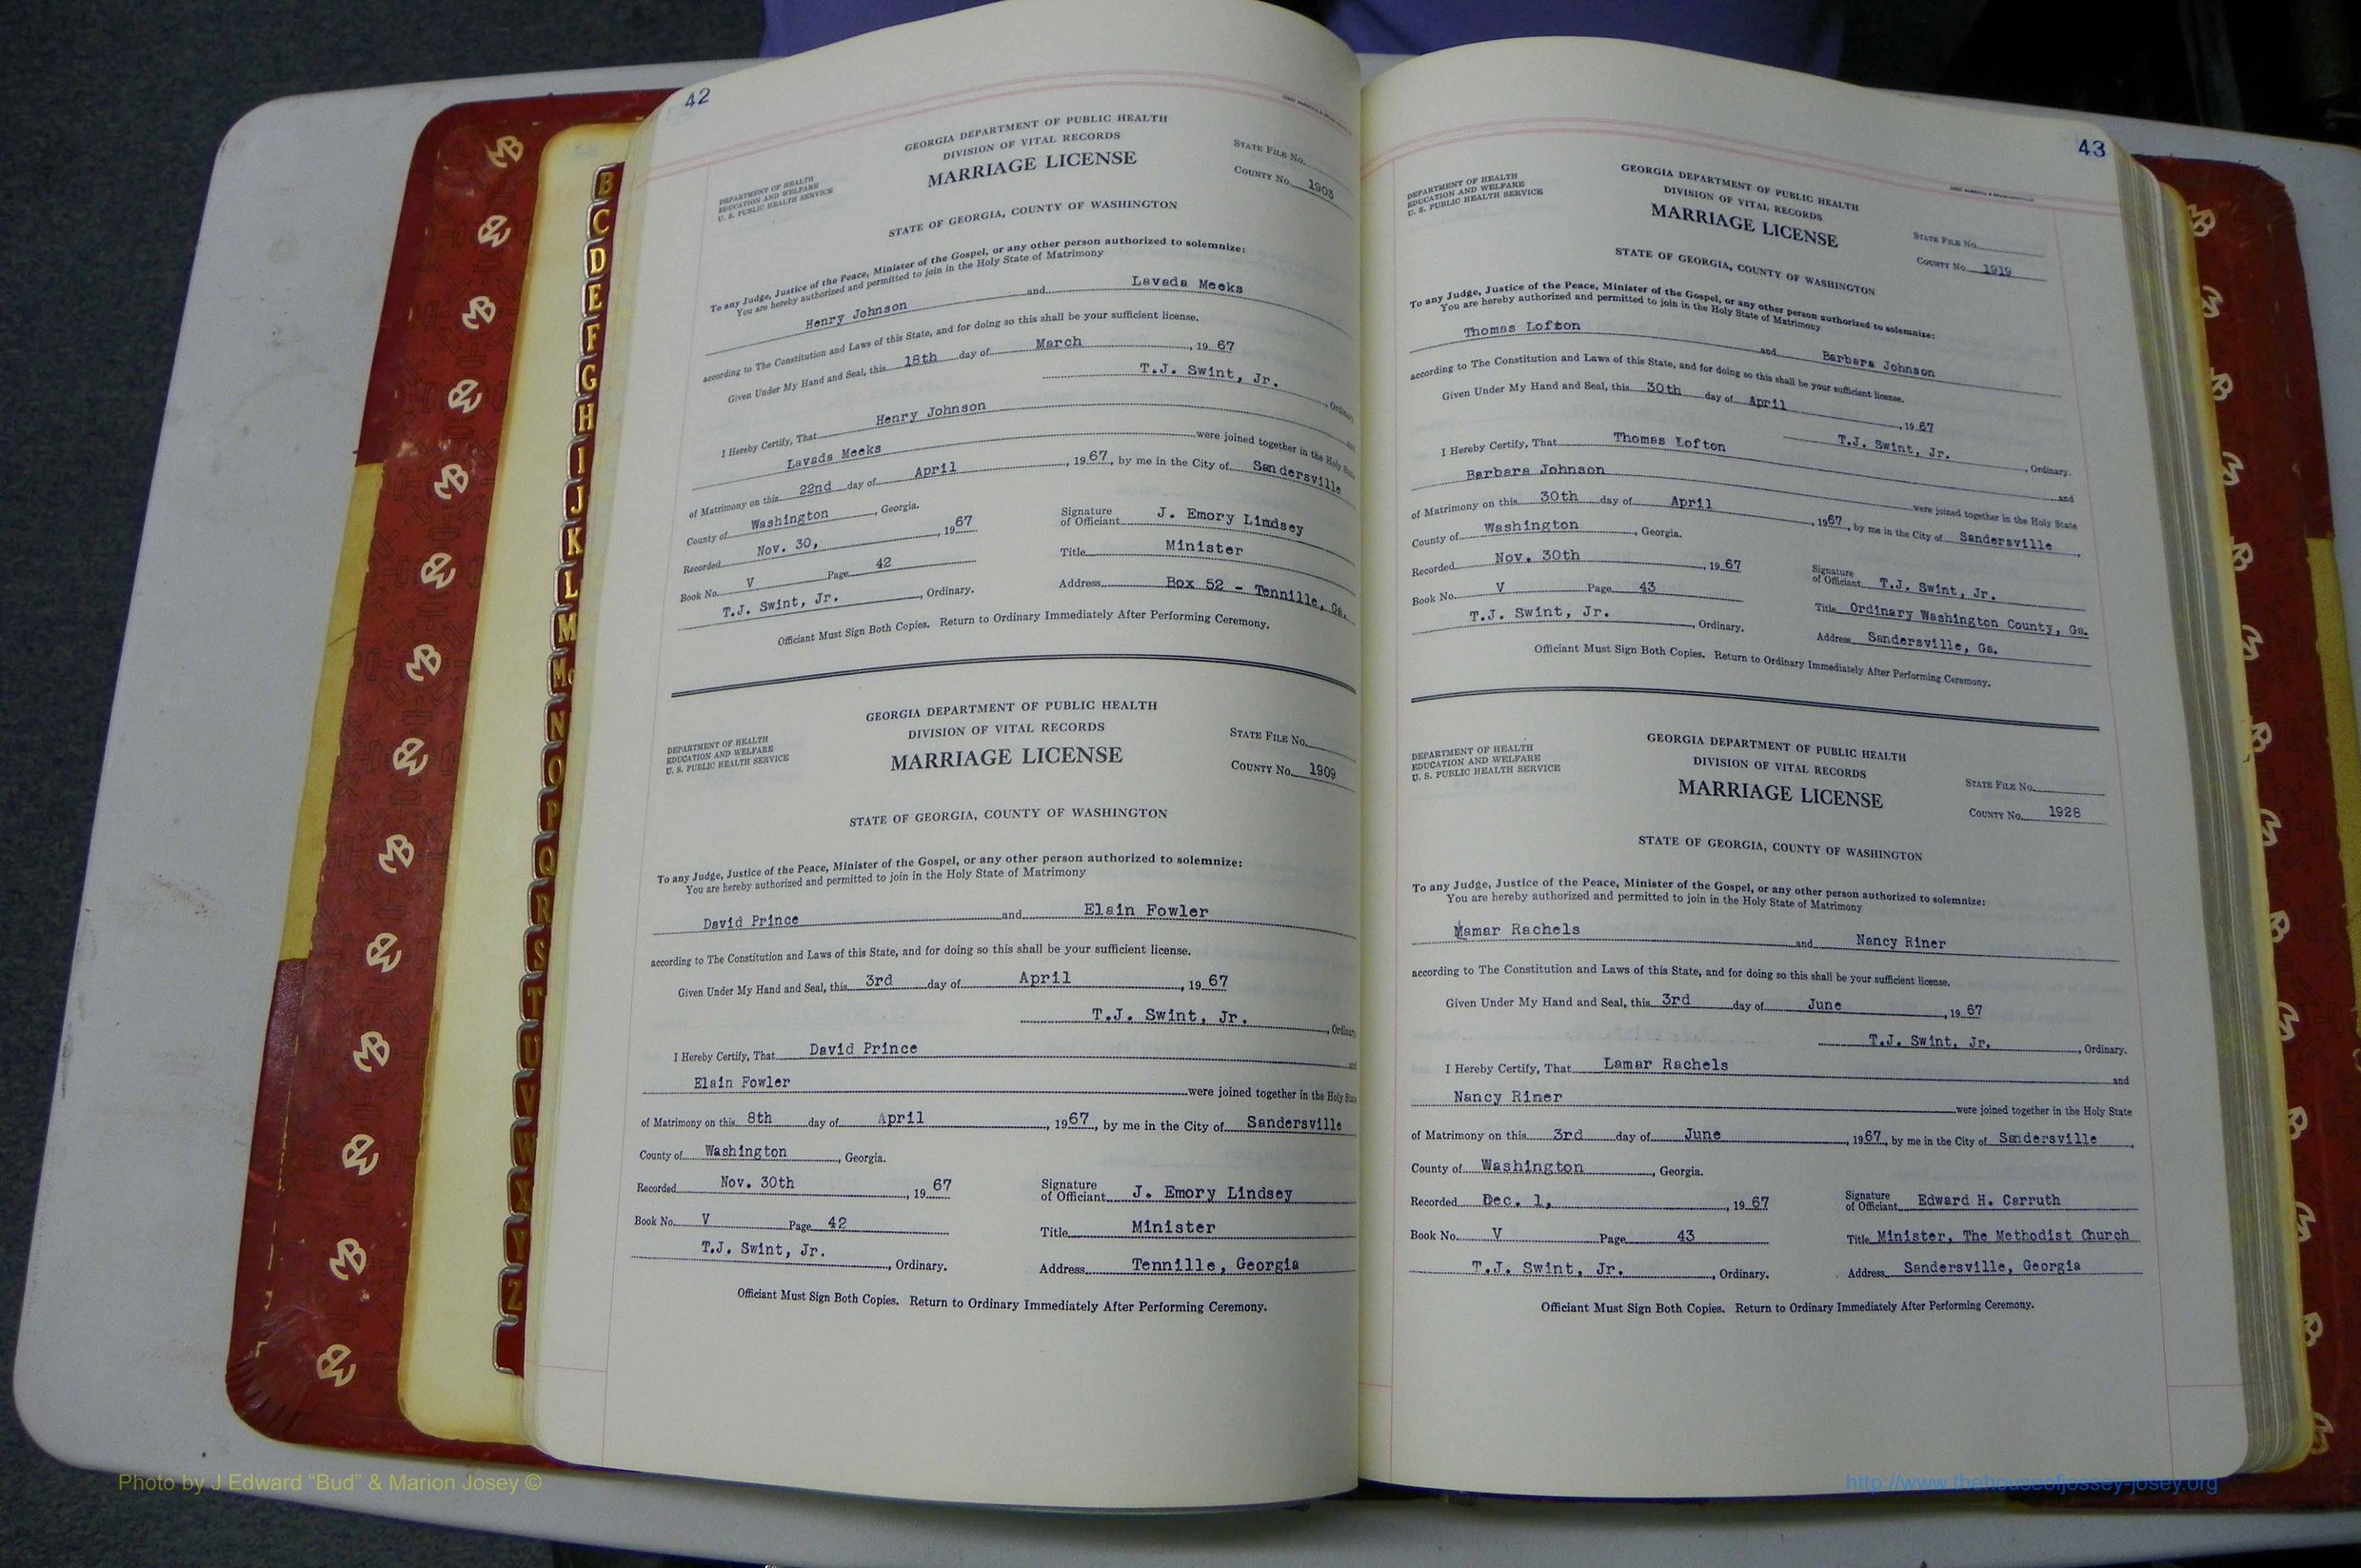 42
GEORGIA DEPARTMENT OF PUBLIC HEALTH
DIVISION OF VITAL RECORDS
MARRIAGE LICENSE
DEPARTMENT OF HEALTH
EDUCATION AND WELFARE
U. S. PUBLIC HEALTH SERVICE
STATE FILE No.
COUNTY No. 1903
STATE OF GEORGIA, COUNTY OF WASHINGTON
To any Judge, Justice of the Peace, Minister of the Gospel, or any other person authorized to solemnize:
You are hereby authorized and permitted to join in the Holy State of Matrimony
Henry Johnson and Lavada Meeks
according to The Constitution and Laws of this State, and for doing so this shall be your sufficient license.
Given Under My Hand and Seal, this 18th day of March, 19 67
T.J. Swint, Jr., Ordinary
I Hereby Certify, That Henry Johnson and
Lavada Meeks were joined together in the Holy State
of Matrimony on this 22nd day of April, 19 67, by me in the City of Sandersville
County of Washington, Georgia.
Recorded Nov. 30, , 19 67
Signature
of Officiant J. Emory Lindsey
Book No. V Page 42
Title Minister
T.J. Swint, Jr., Ordinary.
Address Box 52 - Tennille, Ga.
Officiant Must Sign Both Copies. Return to Ordinary Immediately After Performing Ceremony.
GEORGIA DEPARTMENT OF PUBLIC HEALTH
DIVISION OF VITAL RECORDS
MARRIAGE LICENSE
DEPARTMENT OF HEALTH
EDUCATION AND WELFARE
U. S. PUBLIC HEALTH SERVICE
STATE FILE No.
COUNTY No. 1909
STATE OF GEORGIA, COUNTY OF WASHINGTON
To any Judge, Justice of the Peace, Minister of the Gospel, or any other person authorized to solemnize:
You are hereby authorized and permitted to join in the Holy State of Matrimony
David Prince and Elain Fowler
according to The Constitution and Laws of this State, and for doing so this shall be your sufficient license.
Given Under My Hand and Seal, this 3rd day of April, 19 67
T.J. Swint, Jr., Ordinary
I Hereby Certify, That David Prince and
Elain Fowler were joined together in the Holy State
of Matrimony on this 8th day of April, 19 67, by me in the City of Sandersville
County of Washington, Georgia.
Recorded Nov. 30th, 19 67
Signature
of Officiant J. Emory Lindsey
Book No. V Page 42
Title Minister
T.J. Swint, Jr., Ordinary.
Address Tennille, Georgia
Officiant Must Sign Both Copies. Return to Ordinary Immediately After Performing Ceremony.
43
GEORGIA DEPARTMENT OF PUBLIC HEALTH
DIVISION OF VITAL RECORDS
MARRIAGE LICENSE
DEPARTMENT OF HEALTH
EDUCATION AND WELFARE
U. S. PUBLIC HEALTH SERVICE
STATE FILE No.
COUNTY No. 1919
STATE OF GEORGIA, COUNTY OF WASHINGTON
To any Judge, Justice of the Peace, Minister of the Gospel, or any other person authorized to solemnize:
You are hereby authorized and permitted to join in the Holy State of Matrimony
Thomas Lofton and Barbara Johnson
according to The Constitution and Laws of this State, and for doing so this shall be your sufficient license.
Given Under My Hand and Seal, this 30th day of April, 19 67
T.J. Swint, Jr., Ordinary.
I Hereby Certify, That Thomas Lofton and
Barbara Johnson were joined together in the Holy State
of Matrimony on this 30th day of April, 19 67, by me in the City of Sandersville,
County of Washington, Georgia.
Recorded Nov. 30th, 19 67
Signature
of Officiant T.J. Swint, Jr.
Book No. V Page 43
Title Ordinary Washington County, Ga.
T.J. Swint, Jr., Ordinary.
Address Sandersville, Ga.
Officiant Must Sign Both Copies. Return to Ordinary Immediately After Performing Ceremony.
GEORGIA DEPARTMENT OF PUBLIC HEALTH
DIVISION OF VITAL RECORDS
MARRIAGE LICENSE
DEPARTMENT OF HEALTH
EDUCATION AND WELFARE
U. S. PUBLIC HEALTH SERVICE
STATE FILE No.
COUNTY No. 1928
STATE OF GEORGIA, COUNTY OF WASHINGTON
To any Judge, Justice of the Peace, Minister of the Gospel, or any other person authorized to solemnize:
You are hereby authorized and permitted to join in the Holy State of Matrimony
Lamar Rachels and Nancy Riner
according to The Constitution and Laws of this State, and for doing so this shall be your sufficient license.
Given Under My Hand and Seal, this 3rd day of June, 19 67
T.J. Swint, Jr., Ordinary.
I Hereby Certify, That Lamar Rachels and
Nancy Riner were joined together in the Holy State
of Matrimony on this 3rd day of June, 19 67, by me in the City of Sandersville,
County of Washington, Georgia.
Recorded Dec. 1, , 19 67
Signature
of Officiant Edward H. Carruth
Book No. V Page 43
Title Minister, The Methodist Church
T.J. Swint, Jr., Ordinary.
Address Sandersville, Georgia
Officiant Must Sign Both Copies. Return to Ordinary Immediately After Performing Ceremony.
B
C
D
E
F
G
H
I
J
K
L
M
Mc
N
O
P
Q
R
S
T
U
V
W
X
Y
Z
Photo by J Edward “Bud” & Marion Josey ©
http://www.thehouseofjossey-josey.org